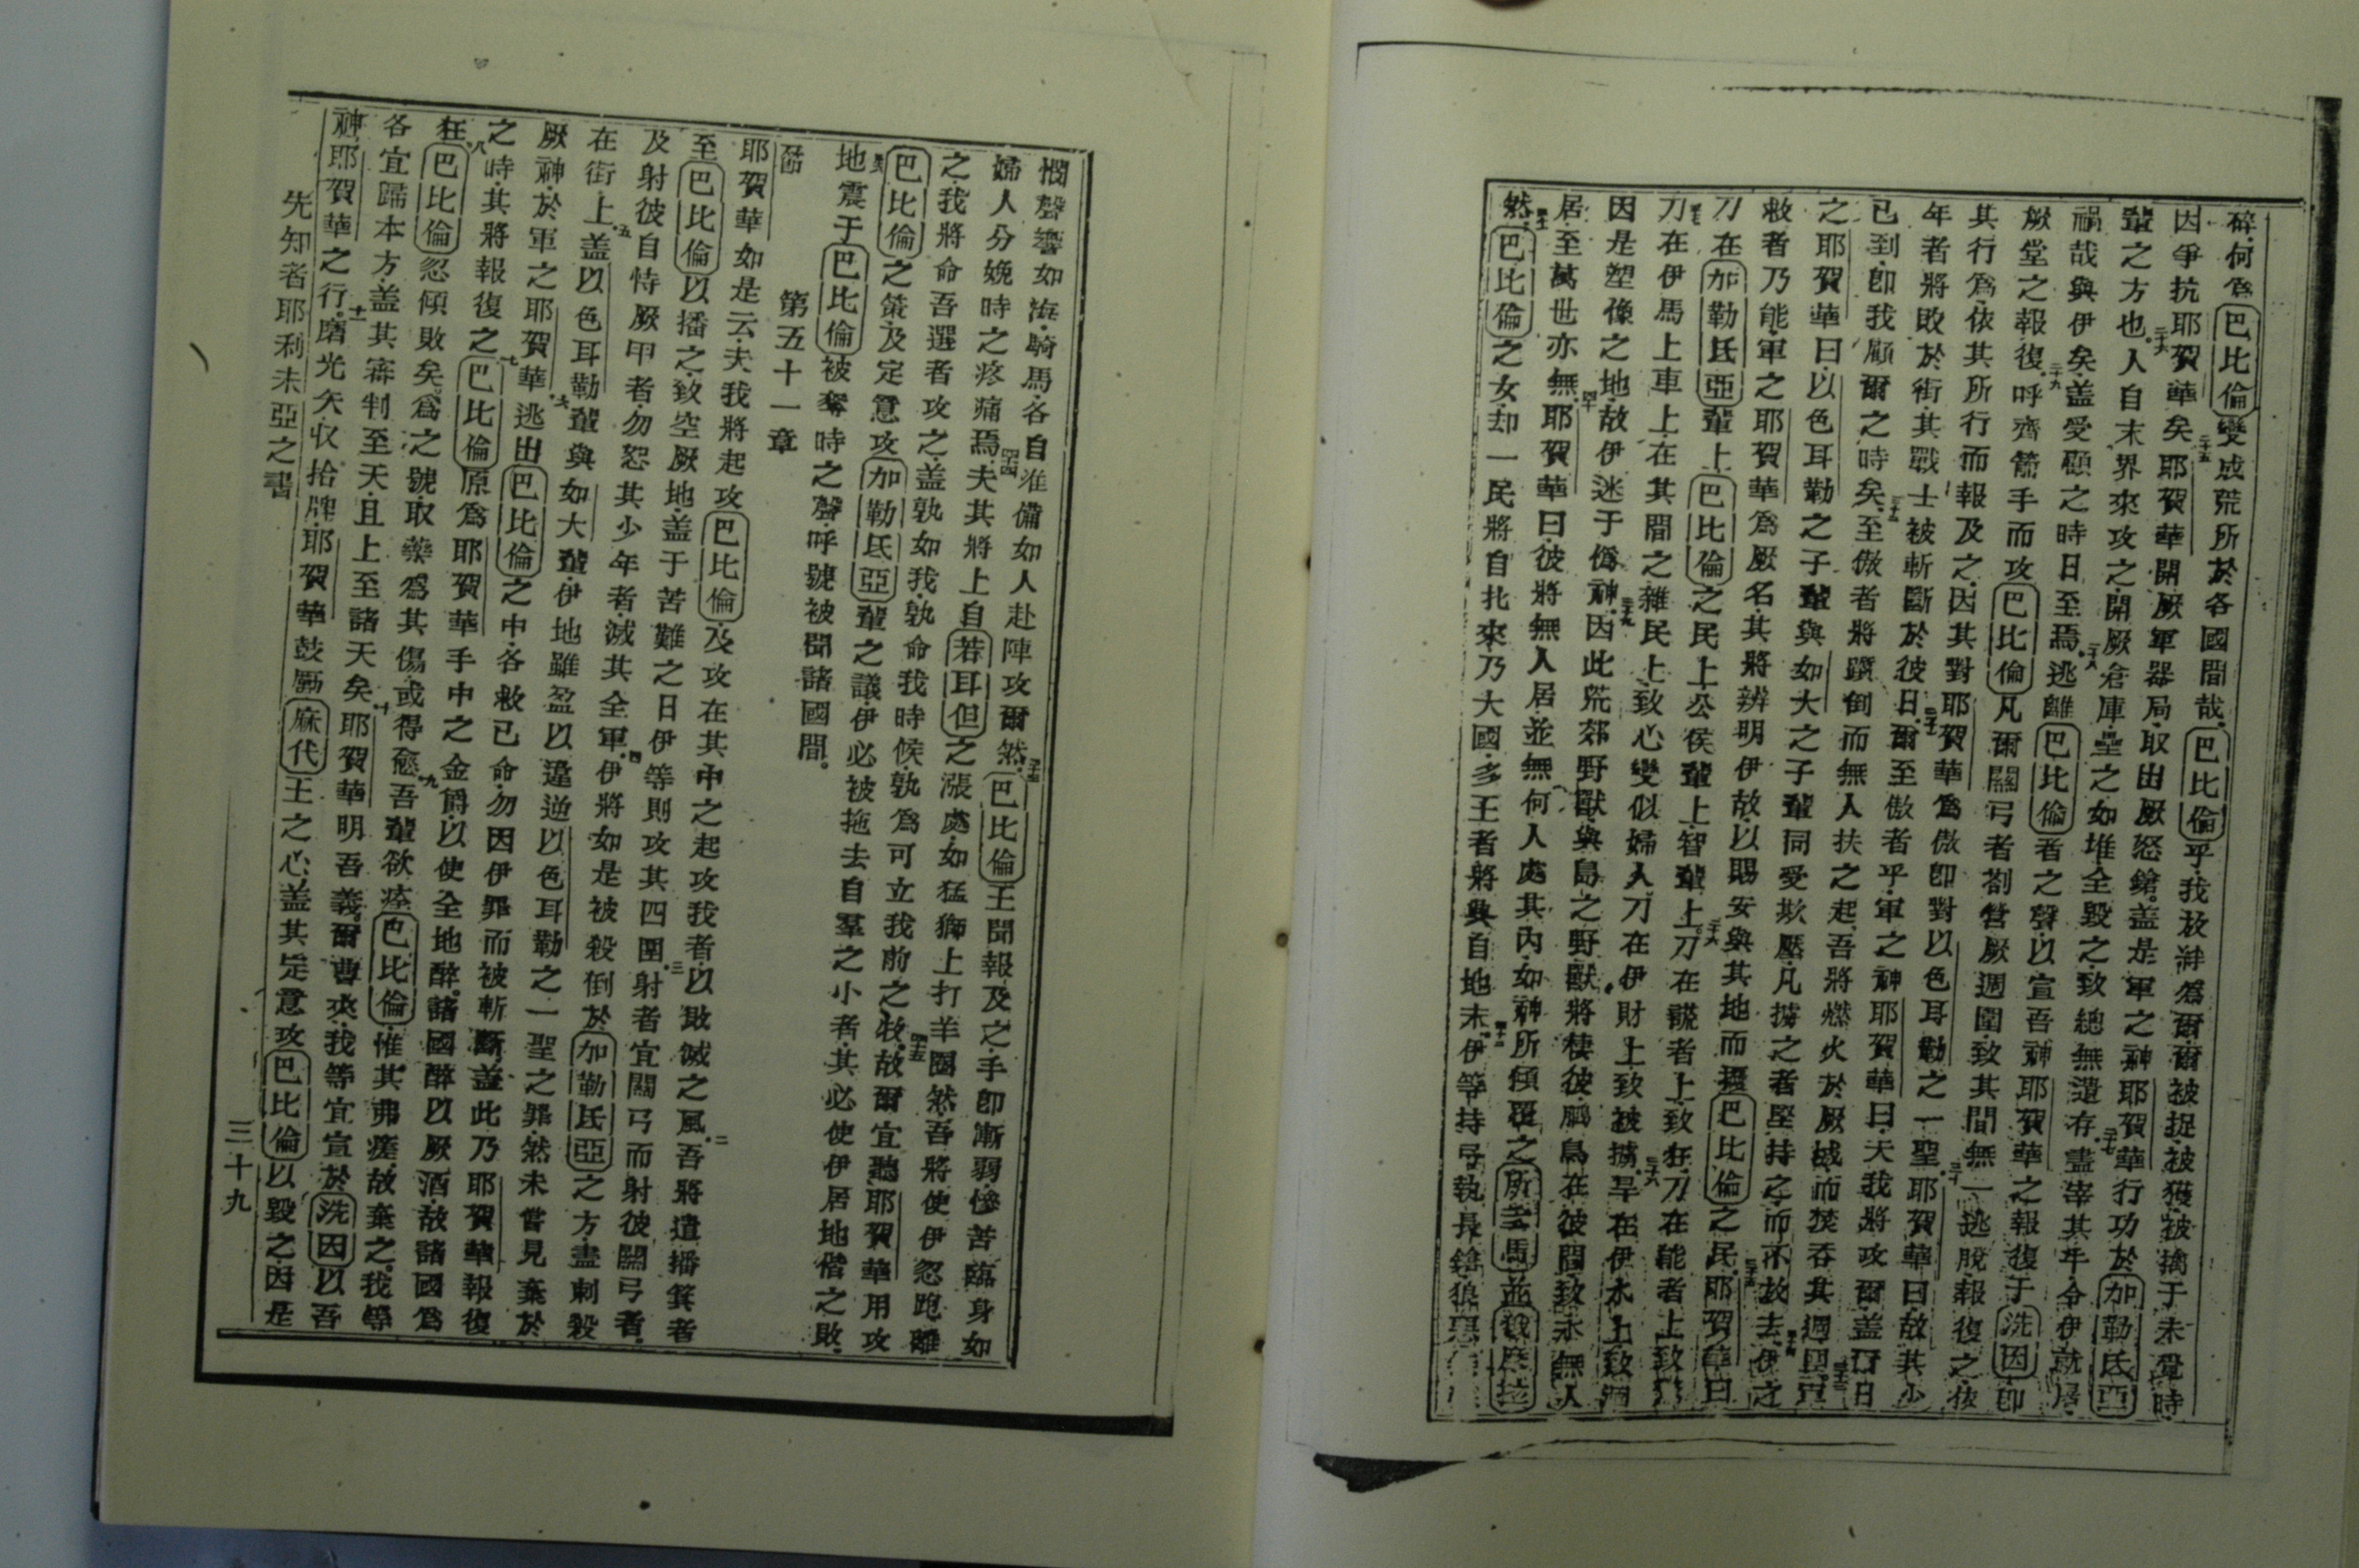 碎何為巴比倫變成荒所於各國間哉巴比倫乎我放絆為爾爾被捉被獲被擒于未覺時
因爭抗耶賀華矣二十五耶賀華開厥軍器局取出厥怒鎗蓋是軍之神耶賀華行功於加勒氐亞
輩之方也二十六人自末界來攻之開厥倉庫壘之如堆全毀之致總無遺存二十七盡宰其牛令伊就屠
禍哉與伊矣蓋受顧之時日至焉二十八逃離巴比倫者之聲以宣吾神耶賀華之報復于洗因即
厥堂之報復二十九呼齊箭手而攻巴比倫凡爾關弓者劄營厥週圍致其間無一逃脫報復之依
其行為依其所行而報及之因其對耶賀華為傲即對以色耳勒之一聖三十耶賀華曰故其少
年者將敗於街其戰士被斬斷於彼日三十一爾至傲者乎軍之神耶賀華曰夫我將攻爾蓋爾日
已到即我顧爾之時矣三十二至傲者將躓倒而無人扶之起吾將燃火於厥城而焚吞其週圍三十三軍
之耶賀華曰以色耳勒之子輩與如大之子輩同受欺壓凡擄之者堅持之而不放去三十四伊之
救者乃能軍之耶賀華為厥名其將辨明伊故以賜安與其地而擾巴比倫之民三十五耶賀華曰
刀在加勒氐亞輩上巴比倫之民上公侯輩上智輩上三十六刀在謊者上致狂刀在能者上致
三十七刀在伊馬上車上在其間之雜民上致心變似婦人刀在伊財上致被擄三十八旱在伊水上致涸
因是塑像之地故伊迷于偽神三十九因此荒郊野獸與島之野獸將棲彼鴟鳥在彼間致永無人
居至萬世亦無四十耶賀華曰彼將無人居並無何人處其內如神所傾覆之所多馬並
然四十一巴比倫之女却一民將自北來乃大國多王者將興自地末四十二伊等持弓執長鎗狼惡
憫聲響如海騎馬各自准備如人赴陣攻爾然四十三巴比倫王聞報及之手即漸弱慘苦臨身如
婦人分娩時之疼痛焉四十四夫其將上自若耳但之漲處如猛獅上打羊圈然吾將使伊忽跑離
之我將命吾選者攻之蓋孰如我孰命我時候孰為可立我前之牧四十五故爾宜聽耶賀華用攻
巴比倫之策及定意攻加勒氐亞輩之議伊必被拖去自羣之小者其必使伊居地偕之敗
地震于巴比倫被奪時之聲呼號被聞諸國間
第五十一章
耶賀華如是云夫我將起攻巴比倫及攻在其中之起攻我者以敗滅之風二吾將遣播箕者
至巴比倫以播之致空厥地蓋于苦難之日伊等則攻其四圍三射者宜關弓而射彼關弓者
及射彼自恃厥甲者勿恕其少年者滅其全軍四伊將如是被殺倒於加勒氐亞之方盡刺殺
在街上五蓋以色耳勒輩與如大輩伊地雖盈以違逆以色耳勒之一聖之罪然未嘗見棄於
厥神於軍之耶賀華六逃出巴比倫之中各救己命勿因伊罪而被斬斷蓋此乃耶賀華報復
之時其將報復之七巴比倫原為耶賀華手中之金爵以使全地醉諸國醉以厥酒故諸國為
狂八巴比倫忽傾敗矣為之號取藥為其傷或得愈九吾輩欲痊巴比倫惟其弗痊故棄之我等
各宜歸本方蓋其審判至天且上至諸天矣十耶賀華明吾義爾曹來我等宜宣於洗因以吾
神耶賀華之行十一磨光矢收拾牌耶賀華鼓厲麻代王之心蓋其定意攻巴比倫以毀之因是
先知者耶利未亞之書　三十九